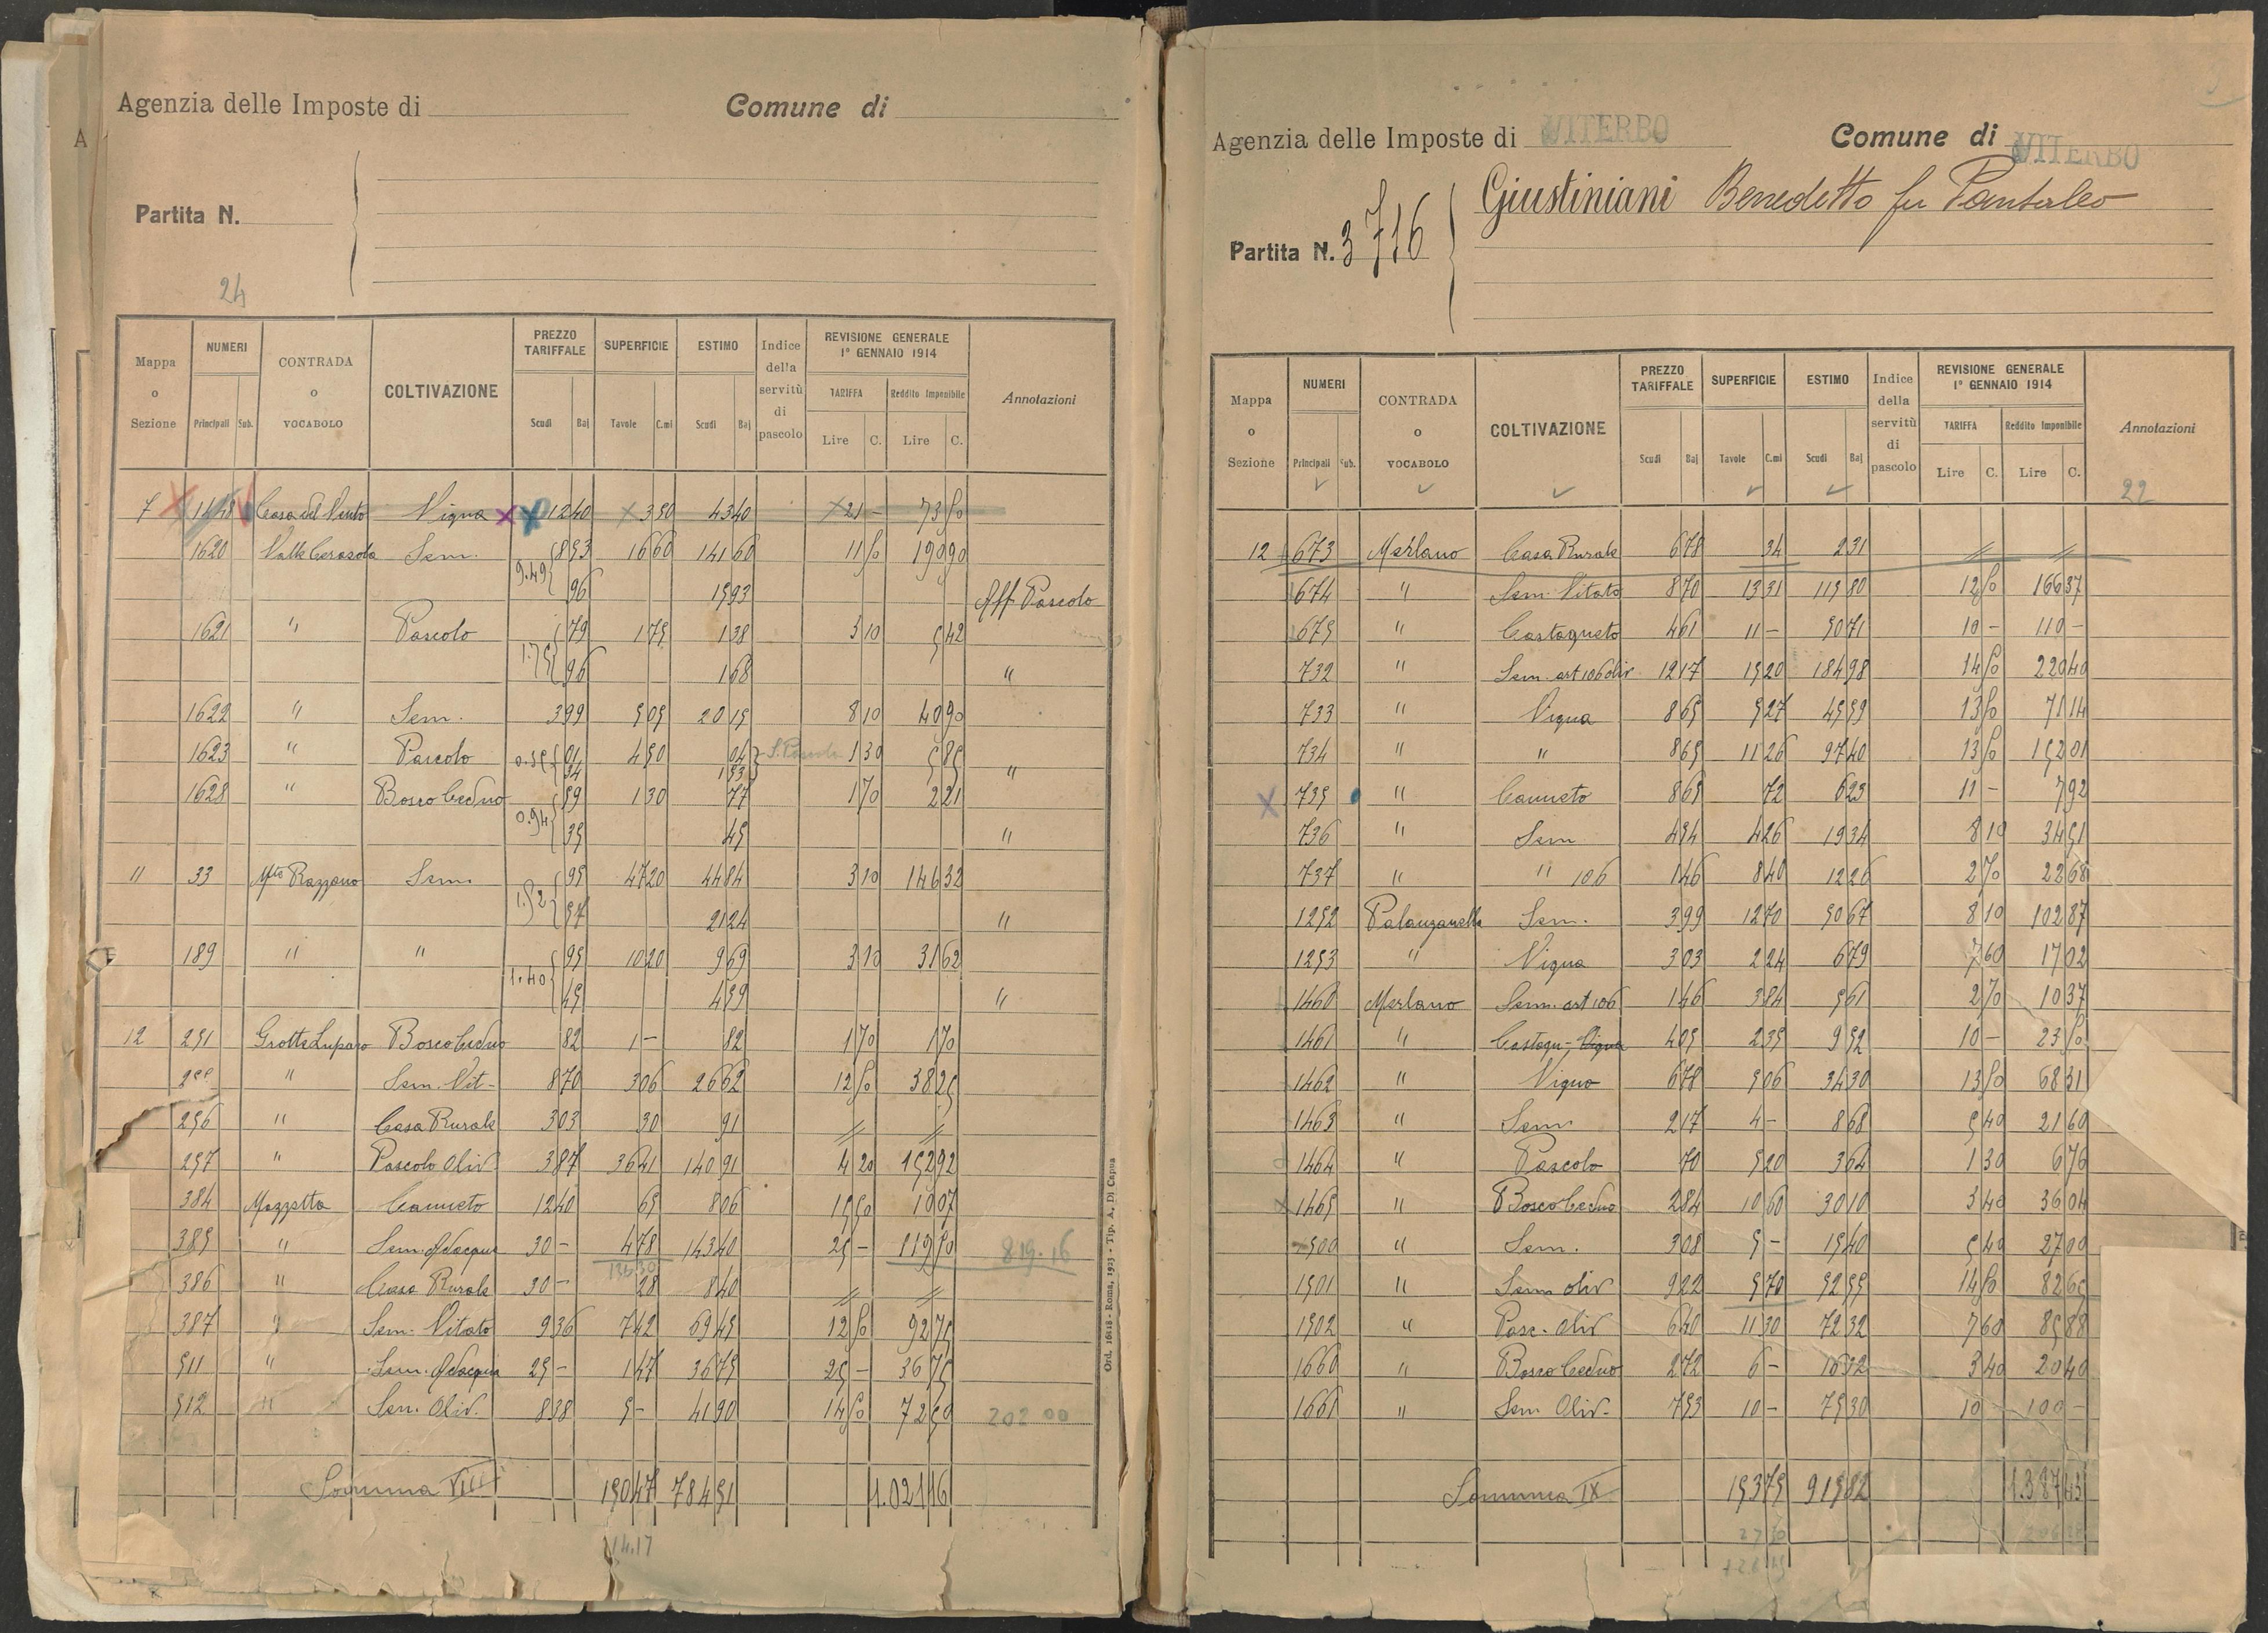 Agenzia delle Imposte di Comune di
Partita N.
24
Mappa o Sezione NUMERI Principali Sub. CONTRADA o VOCABOLO COLTIVAZIONE PREZZO TARIFFALE Scudi Baj SUPERFICIE Tavole C.mi ESTIMO Scudi Baj Indice della servitù di pascolo REVISIONE GENERALE 1° GENNAIO 1914 TARIFFA Lire C. Reddito Imponibile Lire C. Annotazioni
7 Casa del Vento Vigna 12 40 3 50 43 40 21 - 73 50
1620 Valle Cerasola Sem. 8 53 16 60 141 60 11 50 190 90
9.49 96 15 93 Aff. Pascolo
1621 " Pascolo 79 1 75 1 38 3 10 5 42
1.75 96 1 68 "
1622 " Sem. 3 99 5 05 20 15 8 10 40 90
1623 " Pascolo 0.35 01 4 50 04 S. Pascolo 1 30 5 85
34 1 53 "
1628 " Bosco Ceduo 59 1 30 77 1 70 2 21
0.94 35 45 "
11 33 Mte Razzano Sem. 95 47 20 44 84 3 10 146 32
1.52 57 21 24 "
189 " " 95 10 20 9 69 3 10 31 62
1.40 45 4 59 "
12 251 Grotta Luparo Bosco Ceduo 82 1 - 82 1 70 1 70
" Sem. Vit- 8 70 3 06 26 62 12 50 38 25
256 " Casa Rurale 3 03 30 91 // //
257 " Pascolo Oliv 3 87 36 41 140 91 4 20 152 92
384 Mazzetta Canneto 12 40 65 8 06 15 50 10 07
385 " Sem. Adacqua 30 - 4 78 143 40 25 - 119 50 819.16
136.30
386 " Casa Rurale 30 - 28 8 40 // //
387 " Sem. Vitato 9 36 7 42 69 45 12 50 92 75
511 " Sem. Adacqua 25 - 1 47 36 75 25 - 36 75
512 " Sem. Oliv. 8 38 5 - 41 90 14 50 72 50 202 00
Somma VIII 150 47 784 51 1.021 16
14.17
Ord. 16418 - Roma, 1923 - Tip. A. Di Capua
Agenzia delle Imposte di VITERBO Comune di VITERBO
Giustiniani Benedetto fu Pantaleo
Partita N. 3716
Mappa o Sezione NUMERI Principali Sub. CONTRADA o VOCABOLO COLTIVAZIONE PREZZO TARIFFALE Scudi Baj SUPERFICIE Tavole C.mi ESTIMO Scudi Baj Indice della servitù di pascolo REVISIONE GENERALE 1° GENNAIO 1914 TARIFFA Lire C. Reddito Imponibile Lire C. Annotazioni
22
12 673 Merlano Casa Rurale 6 78 34 2 31 // //
674 " Sem. Vitato 8 70 13 31 115 80 12 50 166 37
675 " Castagneto 4 61 11 - 50 71 10 - 110 -
732 " Sem. art 106 oliv 12 17 15 20 184 98 14 50 220 40
733 " Vigna 8 65 5 27 45 59 13 50 71 14
734 " " 8 65 11 26 97 40 13 50 152 01
735 " Canneto 8 65 72 6 23 11 - 7 92
736 " Sem. 4 54 4 26 19 34 8 10 34 51
737 " " 106 1 46 8 40 12 26 2 70 22 68
1252 Palanzanella Sem. 3 99 12 70 50 67 8 10 102 87
1253 " Vigna 3 03 2 24 6 79 7 60 17 02
1460 Merlano Sem. art 106 1 46 3 84 5 61 2 70 10 37
1461 " Castagn- Vigna 4 05 2 35 9 52 10 - 23 50
1462 " Vigna 6 78 5 06 34 30 13 50 68 31
1463 " Sem 2 17 4 - 8 68 5 40 21 60
1464 " Pascolo 70 5 20 3 64 1 30 6 76
1465 " Bosco Ceduo 2 84 10 60 30 10 3 40 36 04
1500 " Sem. 3 08 5 - 15 40 5 40 27 00
1501 " Sem oliv 9 22 5 70 52 55 14 50 82 65
1502 " Pasc. oliv 6 40 11 30 72 32 7 60 85 88
1660 " Bosco Ceduo 2 72 6 - 16 32 3 40 20 40
1661 " Sem Oliv- 7 53 10 - 75 30 10 - 100 -
Somma IX 153 75 915 82 1.387 43